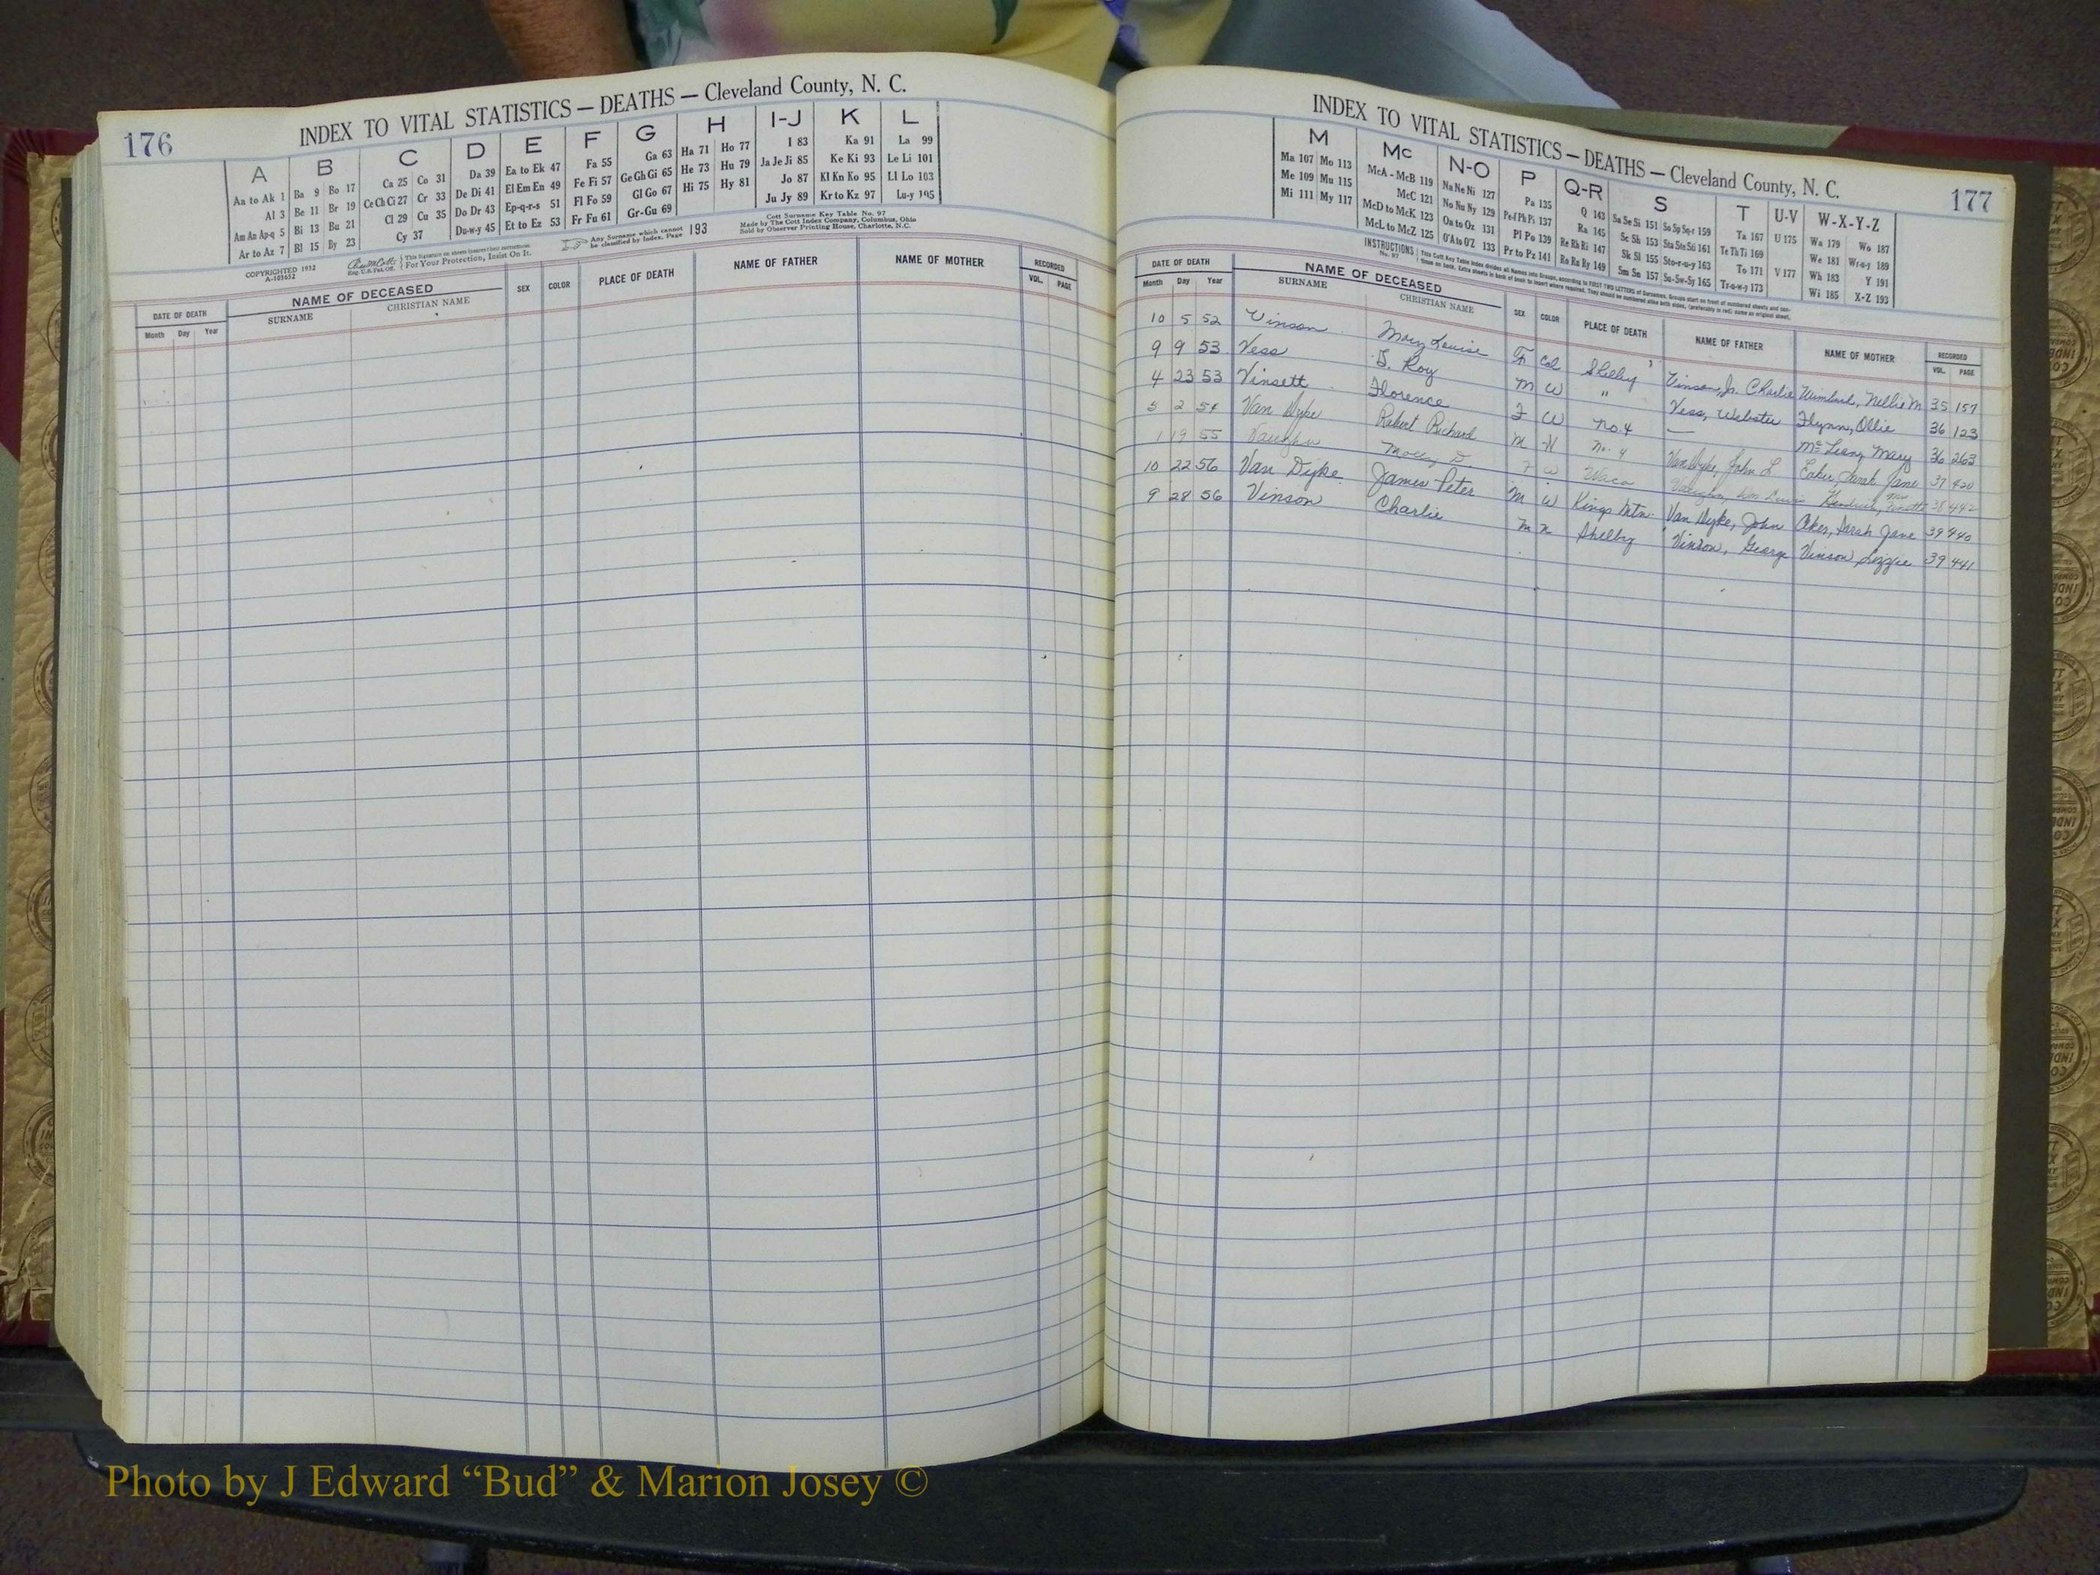 176
INDEX TO VITAL STATISTICS — DEATHS — Cleveland County, N. C.
A B C D E F G H I-J K L
Aa to Ak 1 Ba 9 Bo 17 Ca 25 Co 31 Da 39 Ea to Ek 47 Fa 55 Ga 63 Ha 71 Ho 77 I 83 Ka 91 La 99
Al 3 Be 11 Br 19 Ce Ch Ci 27 Cr 33 De Di 41 El Em En 49 Fe Fi 57 Ge Gh Gi 65 He 73 Hu 79 Ja Je Ji 85 Ke Ki 93 Le Li 101
Am An Ap-q 5 Bi 13 Bu 21 Cl 29 Cu 35 Do Dr 43 Ep-q-r-s 51 Fl Fo 59 Gl Go 67 Hi 75 Hy 81 Jo 87 Kl Kn Ko 95 Ll Lo 103
Ar to Az 7 Bl 15 By 23 Cy 37 Du-w-y 45 Et to Ez 53 Fr Fu 61 Gr-Gu 69 Ju Jy 89 Kr to Kz 97 Lu-y 105
COPYRIGHTED 1932
A-103652
This signature on sheets insures their correctness.
For Your Protection, Insist On It.
Any Surname which cannot be classified by Index, Page 193
Cott Surname Key Table No. 97
Made by The Cott Index Company, Columbus, Ohio
Sold by Observer Printing House, Charlotte, N.C.
DATE OF DEATH NAME OF DECEASED SEX COLOR PLACE OF DEATH NAME OF FATHER NAME OF MOTHER RECORDED
Month Day Year SURNAME CHRISTIAN NAME VOL. PAGE
INDEX TO VITAL STATISTICS — DEATHS — Cleveland County, N. C.
177
M Mc N-O P Q-R S T U-V W-X-Y-Z
Ma 107 Mo 113 McA - McB 119 Na Ne Ni 127 Pa 135 Q 143 Sa Se Si 151 So Sp Sq-r 159 Ta 167 U 175 Wa 179 Wo 187
Me 109 Mu 115 McC 121 No Nu Ny 129 Pe-f Ph Pi 137 Ra 145 Sc Sh 153 Sta Ste Sti 161 Te Th Ti 169 We 181 Wr-u-y 189
Mi 111 My 117 McD to McK 123 Oa to Oz 131 Pl Po 139 Re Rh Ri 147 Sk Sl 155 Sto-r-u-y 163 To 171 V 177 Wh 183 Y 191
McL to McZ 125 O'A to O'Z 133 Pr to Pz 141 Ro Ru Ry 149 Sm Sn 157 Su-Sw-Sy 165 Tr-u-w-y 173 Wi 185 X-Z 193
INSTRUCTIONS No. 97
DATE OF DEATH NAME OF DECEASED SEX COLOR PLACE OF DEATH NAME OF FATHER NAME OF MOTHER RECORDED
Month Day Year SURNAME CHRISTIAN NAME VOL. PAGE
10 5 52 Vinson Mary Louise F Col Shelby Vinson, Jr. Charlie Nellie M 35 157
9 9 53 Vess D. Roy M W " Vess, Webster Flynn, Ollie 36 123
4 23 53 Vinsett Florence F W No. 4 — Mary 36 263
5 2 54 Van Dyke Robert Richard M W No. 4 Van Dyke, John L Eaker, Sarah Jane 37 420
1 19 55 Vaughn Molly D. F W Waco 38 442
10 22 56 Van Dyke James Peter M W Kings Mtn. Van Dyke, John Sarah Jane 39 440
9 28 56 Vinson Charlie M N Shelby Vinson, George Vinson Lizzie 39 441
Photo by J Edward “Bud” & Marion Josey ©